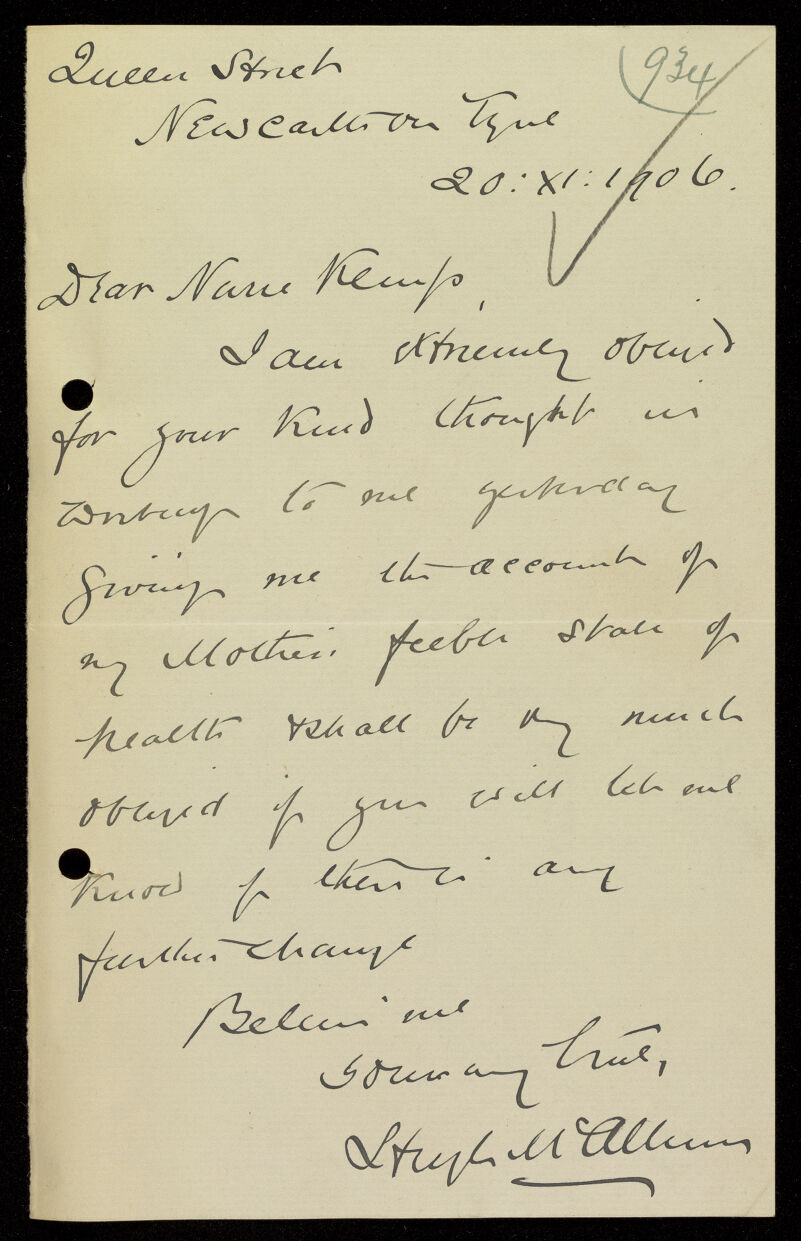 934
Queen Street
Newcastle on Tyne
20: XI: 1906.
Dear Nurse Kemp,
I am extremely obliged
for your kind thought in
writing to me yesterday
giving me the account of
my Mothers feeble state of
health & shall be very much
obliged if you will let me
know if there is any
further change
Believe me
yours very truly,
Hugh McAllum